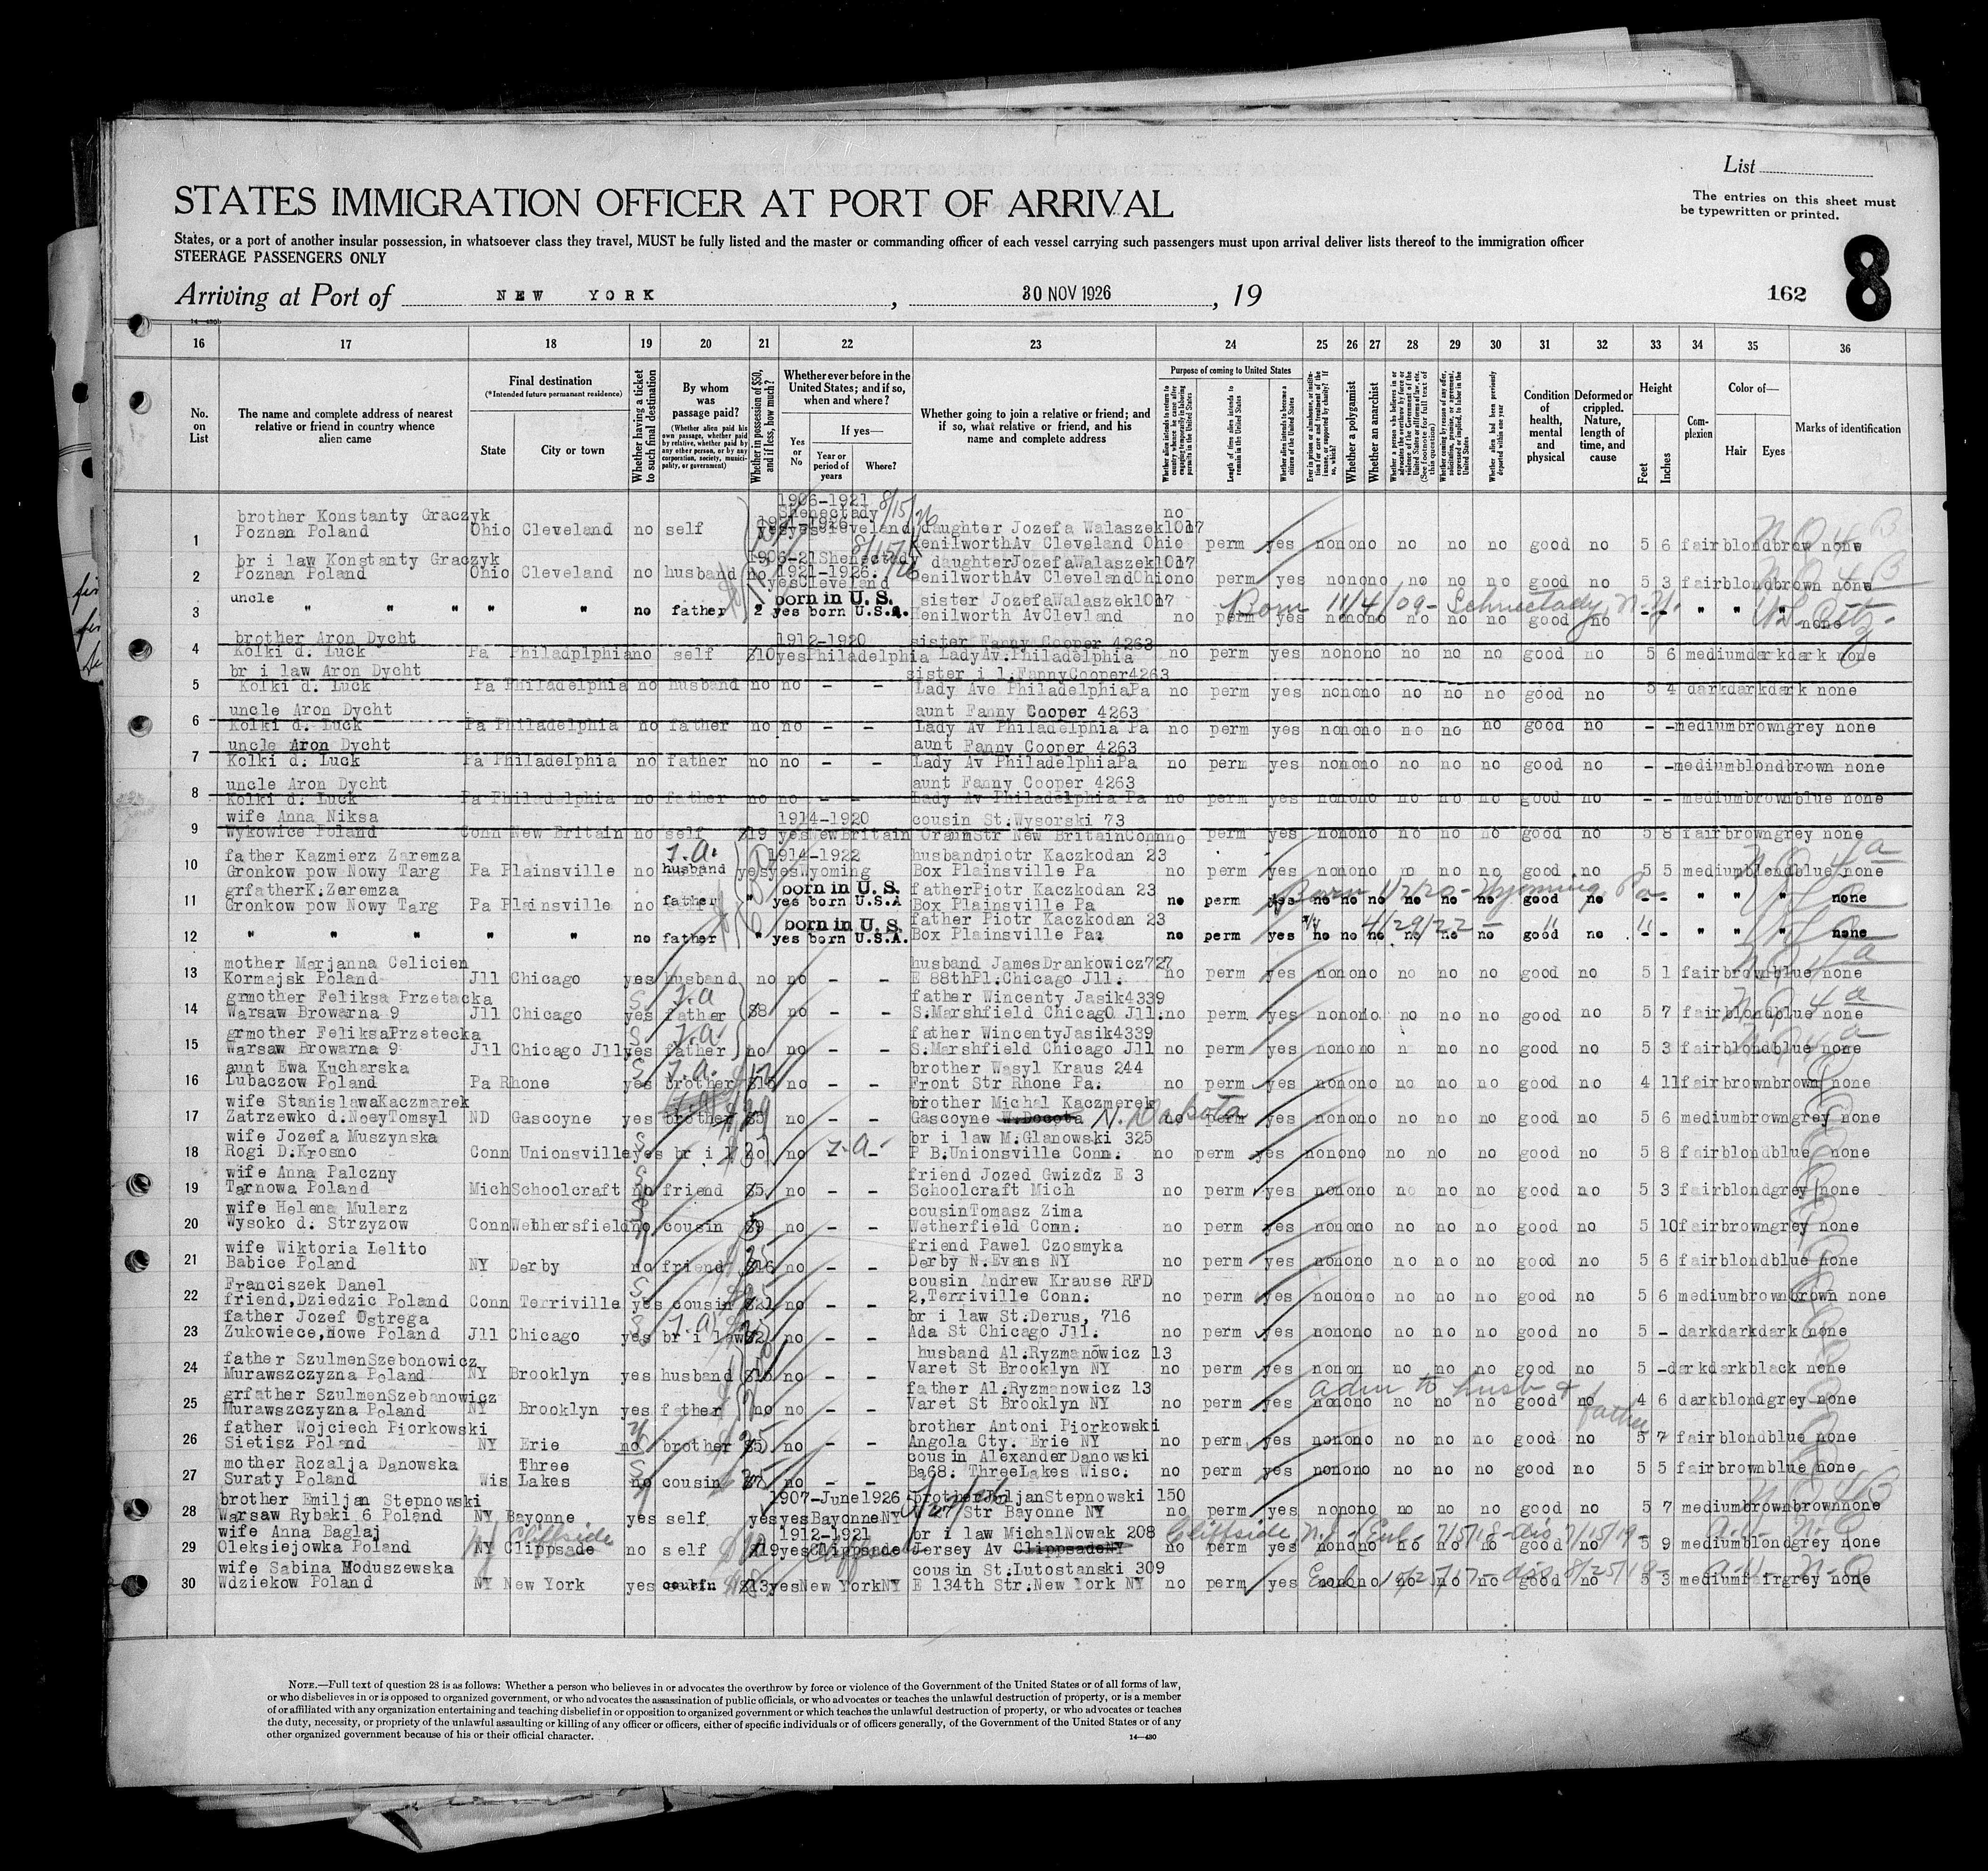 List
The entries on this sheet must
be typewritten or printed.
STATES IMMIGRATION OFFICER AT PORT OF ARRIVAL
States, or a port of another insular possession, in whatsoever class they travel, MUST be fully listed and the master or commanding officer of each vessel carrying such passengers must upon arrival deliver lists thereof to the immigration officer
STEERAGE PASSENGERS ONLY
Arriving at Port of NEW YORK, 30 NOV 1926, 19
162 8
16 17 18 19 20 21 22 23 24 25 26 27 28 29 30 31 32 33 34 35 36
No. on List
The name and complete address of nearest relative or friend in country whence alien came
Final destination
(*Intended future permanant residence)
State
City or town
Whether having a ticket to such final destination
By whom was passage paid?
(Whether alien paid his own passage, whether paid by relative, whether paid by any other person, or by any corporation, society, municipality, or government)
Whether in possession of $50, and if less, how much?
Whether ever before in the United States; and if so, when and where?
Yes or No
If yes—
Year or period of years
Where?
Whether going to join a relative or friend; and if so, what relative or friend, and his name and complete address
Purpose of coming to United States
Length of time alien intends to remain in the United States
Whether alien intends to become a citizen of the United States
Whether a polygamist
Whether an anarchist
Condition of health, mental and physical
Deformed or crippled. Nature, length of time, and cause
Height
Feet
Inches
Complexion
Color of—
Hair
Eyes
Marks of identification
1906-1921
brother Konstanty Graczyk Shenectady 8/15/26 no
1 Poznan Poland Ohio Cleveland no self yes yes Cleveland daughter Jozefa Walaszek1017
KenilworthAv Cleveland Ohio perm yes no no no no no no good no 5 6 fair blond brow none
br i law Konstanty Graczyk 1906-21 Shenectady daughterJozefaWalaszek1017
2 Poznan Poland Ohio Cleveland no husband no 1921-1926. yes Cleveland KenilworthAv ClevelandOhio no perm yes no no no no no no good no 5 3 fair blond brown none
uncle born in U. S. sister JozefaWalaszek1017
3 " " " " " no father 2 yes born U.S.A. Kenilworth AvClevland no perm yes no no no no no no good no - - " " " none
Born 11/4/09 - Schnectady, N.Y.
brother Aron Dycht 1912-1920 sister Fanny Cooper 4263
4 Kolki d. Luck Pa Philadplphia no self $10 yes Philadelphia LadyAv.Philadelphia no perm yes no no no no no no good no 5 6 medium dark dark none
br i law Aron Dycht sister i l.FannyCooper4263
5 Kolki d. Luck Pa Philadelphia no husband no no - - Lady Ave PhiladelphiaPa no perm yes no no no no no no good no 5 4 dark dark dark none
uncle Aron Dycht aunt Fanny Cooper 4263
6 Kolki d. Luck Pa Philadelphia no father no no - - Lady Av Philadelphia Pa no perm yes no no no no no no good no - - medium brown grey none
uncle Aron Dycht aunt Fanny Cooper 4263
7 Kolki d. Luck Pa Philadelphia no father no no - - Lady Av PhiladelphiaPa no perm yes no no no no no no good no - - medium blond brown none
uncle Aron Dycht aunt Fanny Cooper 4263
8 Kolki d. Luck Pa Philadelphia no father no no - - Lady Av Philadelphia Pa no perm yes no no no no no no good no - - medium brown blue none
wife Anna Niksa 1914-1920 cousin St.Wysorski 73
9 Wykowice Poland Conn New Britain no self $19 yes New Britain Str New BritainConn no perm yes no no no no no no good no 5 8 fair brown grey none
father Kazmierz Zaremza 1914-1922 husbandpiotr Kaczkodan 23
10 Gronkow pow Nowy Targ Pa Plainsville no husband yes yes Wyoming Box Plainsville Pa no perm yes no no no no no no good no 5 5 medium blond blue none
grfatherK.Zeremza born in U. S. fatherPiotr Kaczkodan 23
11 Gronkow pow Nowy Targ Pa Plainsville no father " yes born U.S.A Box Plainsville Pa no perm yes no no no no no no good no - - " " " none
Born 1/2/20 - Wyoming Pa -
born in U. S. father Piotr Kaczkodan 23
12 " " " " " no father " yes born U.S.A. Box Plainsville Pa no perm yes no no no no no no good no - - " " " none
4/29/22 -
mother Marjanna Celicien husband JamesDrankowicz727
13 Kormajsk Poland Jll Chicago yes husband no no - - E 88thPl.Chicago Jll. no perm yes no no no no no no good no 5 1 fair brown blue none
grmother Feliksa Przetacka father Wincenty Jasik4339
14 Warsaw Browarna 9 Jll Chicago yes father $8 no - - S.Marshfield ChicagO Jll. no perm yes no no no no no no good no 5 7 fair blond blue none
grmother FeliksaPrzetecka father WincentyJasik4339
15 Warsaw Browarna 9 Jll Chicago Jll yes father no no - - S.Marshfield Chicago Jll no perm yes no no no n no no good no 5 3 fair blond blue none
aunt Ewa Kucharska brother Wasyl Kraus 244
16 Lubaczow Poland Pa Rhone yes brother no - - Front Str Rhone Pa. no perm yes no no no no no no good no 4 11 fair brown brown none
wife StanislawaKaczmarek brother Michal Kaczmerek
17 Zatrzewko d.NoeyTomsyl ND Gascoyne yes brother no - - Gascoyne N. Dakota no perm yes no no no no no no good no 5 6 medium brown grey none
wife Jozefa Muszynska br i law M.Glanowski 325
18 Rogi D.Krosno Conn Unionsville yes br i l no - - P B.Unionsville Conn. no perm yes no no no no no no good no 5 8 fair blond blue none
wife Anna Palczny friend Jozed Gwizdz E 3
19 Tarnowa Poland Mich Schoolcraft no friend $5 no - - Schoolcraft Mich no perm yes no no no no no no good no 5 3 fair blond grey none
wife Helena Mularz cousinTomasz Zima
20 Wysoko d. Strzyzow Conn Wethersfield no cousin $9 no - - Wetherfield Conn. no perm yes no no no no no no good no 5 10 fair brown grey none
wife Wiktoria Lelito friend Pawel Czosmyka
21 Babice Poland NY Derby no friend $16 no - - Derby N.Evans NY no perm yes no no no no no no good no 5 6 fair blond blue none
Franciszek Danel cousin Andrew Krause RFD
22 friend,Dziedzic Poland Conn Terriville yes cousin $21 no - - 2,Terriville Conn. no perm yes no no no no no no good no 5 6 medium brown brown none
father Jozef Ostrega br i law St.Derus, 716
23 Zukowiece,Nowe Poland Jll Chicago yes br i law no - - Ada St Chicago Jll. no perm yes no no no no no no good no 5 - dark dark dark none
father SzulmenSzebonowicz husband Al.Ryzmanowicz 13
24 Murawszczyzna Poland NY Brooklyn yes husband no - - Varet St Brooklyn NY no perm yes no no n no no no good no 5 - dark dark black none
grfather SzulmenSzebanowicz father Al.Ryzmanowicz 13 adm to husb & father
25 Murawszczyzna Poland NY Brooklyn yes father no no - - Varet St Brooklyn NY no perm yes no no no no no no good no 4 6 dark blond grey none
father Wojciech Piorkowski brother Antoni Piorkowski
26 Sietisz Poland NY Erie no brother $5 no - - Angola Cty. Erie NY no perm yes no no no no no no good no 5 7 fair blond blue none
mother Rozalja Danowska Three cousin AlexanderDanowski
27 Suraty Poland Wis Lakes no cousin no - - Ba68. ThreeLakes Wisc. no perm yes no no no no no no good no 5 5 fair brown blue none
brother Emiljan Stepnowski 1907-June1926 brotherJuljanStepnowski 150
28 Warsaw Rybaki 6 Poland NY Bayonne yes self yes yes BayonneNY W 27 Str Bayonne NY no perm yes no no no no no no good no 5 7 medium brown brown none
wife Anna Baglaj Cliffside 1912-1921 br i law MichalNowak 208 Cliffside, N.J.
29 Oleksiejowka Poland NY Clippsade no self $19 yes Clippsade Jersey Av ClippsadeNY no perm yes no no no no no no good no 5 9 medium blond grey none
wife Sabina Moduszewska cousin St.Lutostanski 309
30 Wdziekow Poland NY New York yes $13 yes New YorkNY E 134th Str.New York NY no perm yes no no no no no no good no 5 3 medium fair grey none
NOTE.—Full text of question 28 is as follows: Whether a person who believes in or advocates the overthrow by force or violence of the Government of the United States or of all forms of law,
or who disbelieves in or is opposed to organized government, or who advocates the assassination of public officials, or who advocates or teaches the unlawful destruction of property, or is a member
of or affiliated with any organization entertaining and teaching disbelief in or opposition to organized government or which teaches the unlawful destruction of property, or who advocates or teaches
the duty, necessity, or propriety of the unlawful assaulting or killing of any officer or officers, either of specific individuals or of officers generally, of the Government of the United States or of any
other organized government because of his or their official character.
14—430